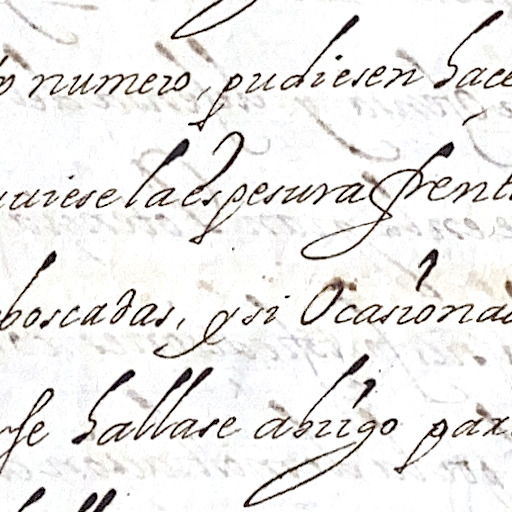 numero, pudiesen hace
uviese la espesura frent
boscadas, y si Ocasiona
se hallase abrigo par